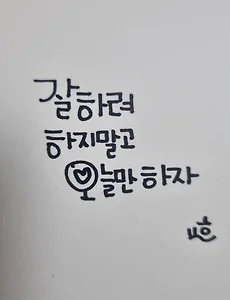 잘하려
하지말고
오늘만 하자